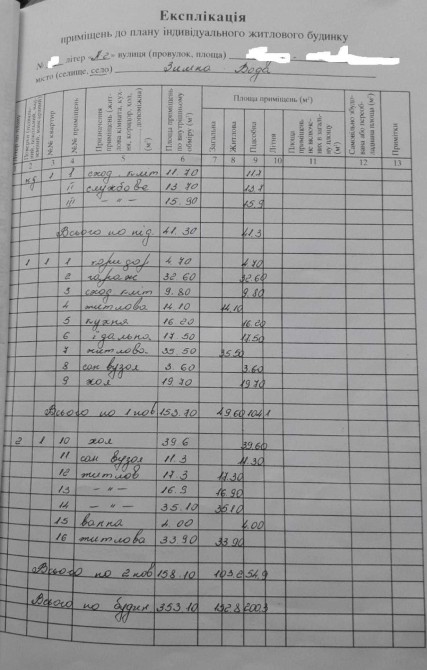 Експлікація
приміщень до плану індивідуального житлового будинку
№ літер А-2 вулиця (провулок, площа)
місто (селище, село) Зимна Вода
№№ квартир
№№ приміщень
Площа приміщень по внутрішньому обміру (м²)
Площа приміщень (м²)
Загальна
Житлова
Підсобна
Літня
Примітки
3 4 5 6 7 8 9 10 11 12 13
під 1 I сход. клит 11.70 11.7
II службове 13.70 13.7
III — " — 15.90 15.9
Всього по під 41.30 41.3
1 1 1 коридор 4.70 4.70
2 гараж 32.60 32.60
3 сход клит 9.80 9.80
4 житлова 14.10 14.10
5 кухня 16.20 16.20
6 їдальня 17.50 17.50
7 житлова 35.50 35.50
8 сан вузол 3.60 3.60
9 хол 19.70 19.70
Всього по 1 пов 153.70 49.60 104.1
2 1 10 хол 39.6 39.60
11 сан вузол 11.3 11.30
12 житлов 17.3 17.30
13 — " — 16.9 16.90
14 — " — 35.10 35.10
15 ванна 4.00 4.00
16 житлова 33.90 33.90
Всього по 2 пов 158.10 103.2 54.9
Всього по будин 353.10 152.8 200.3